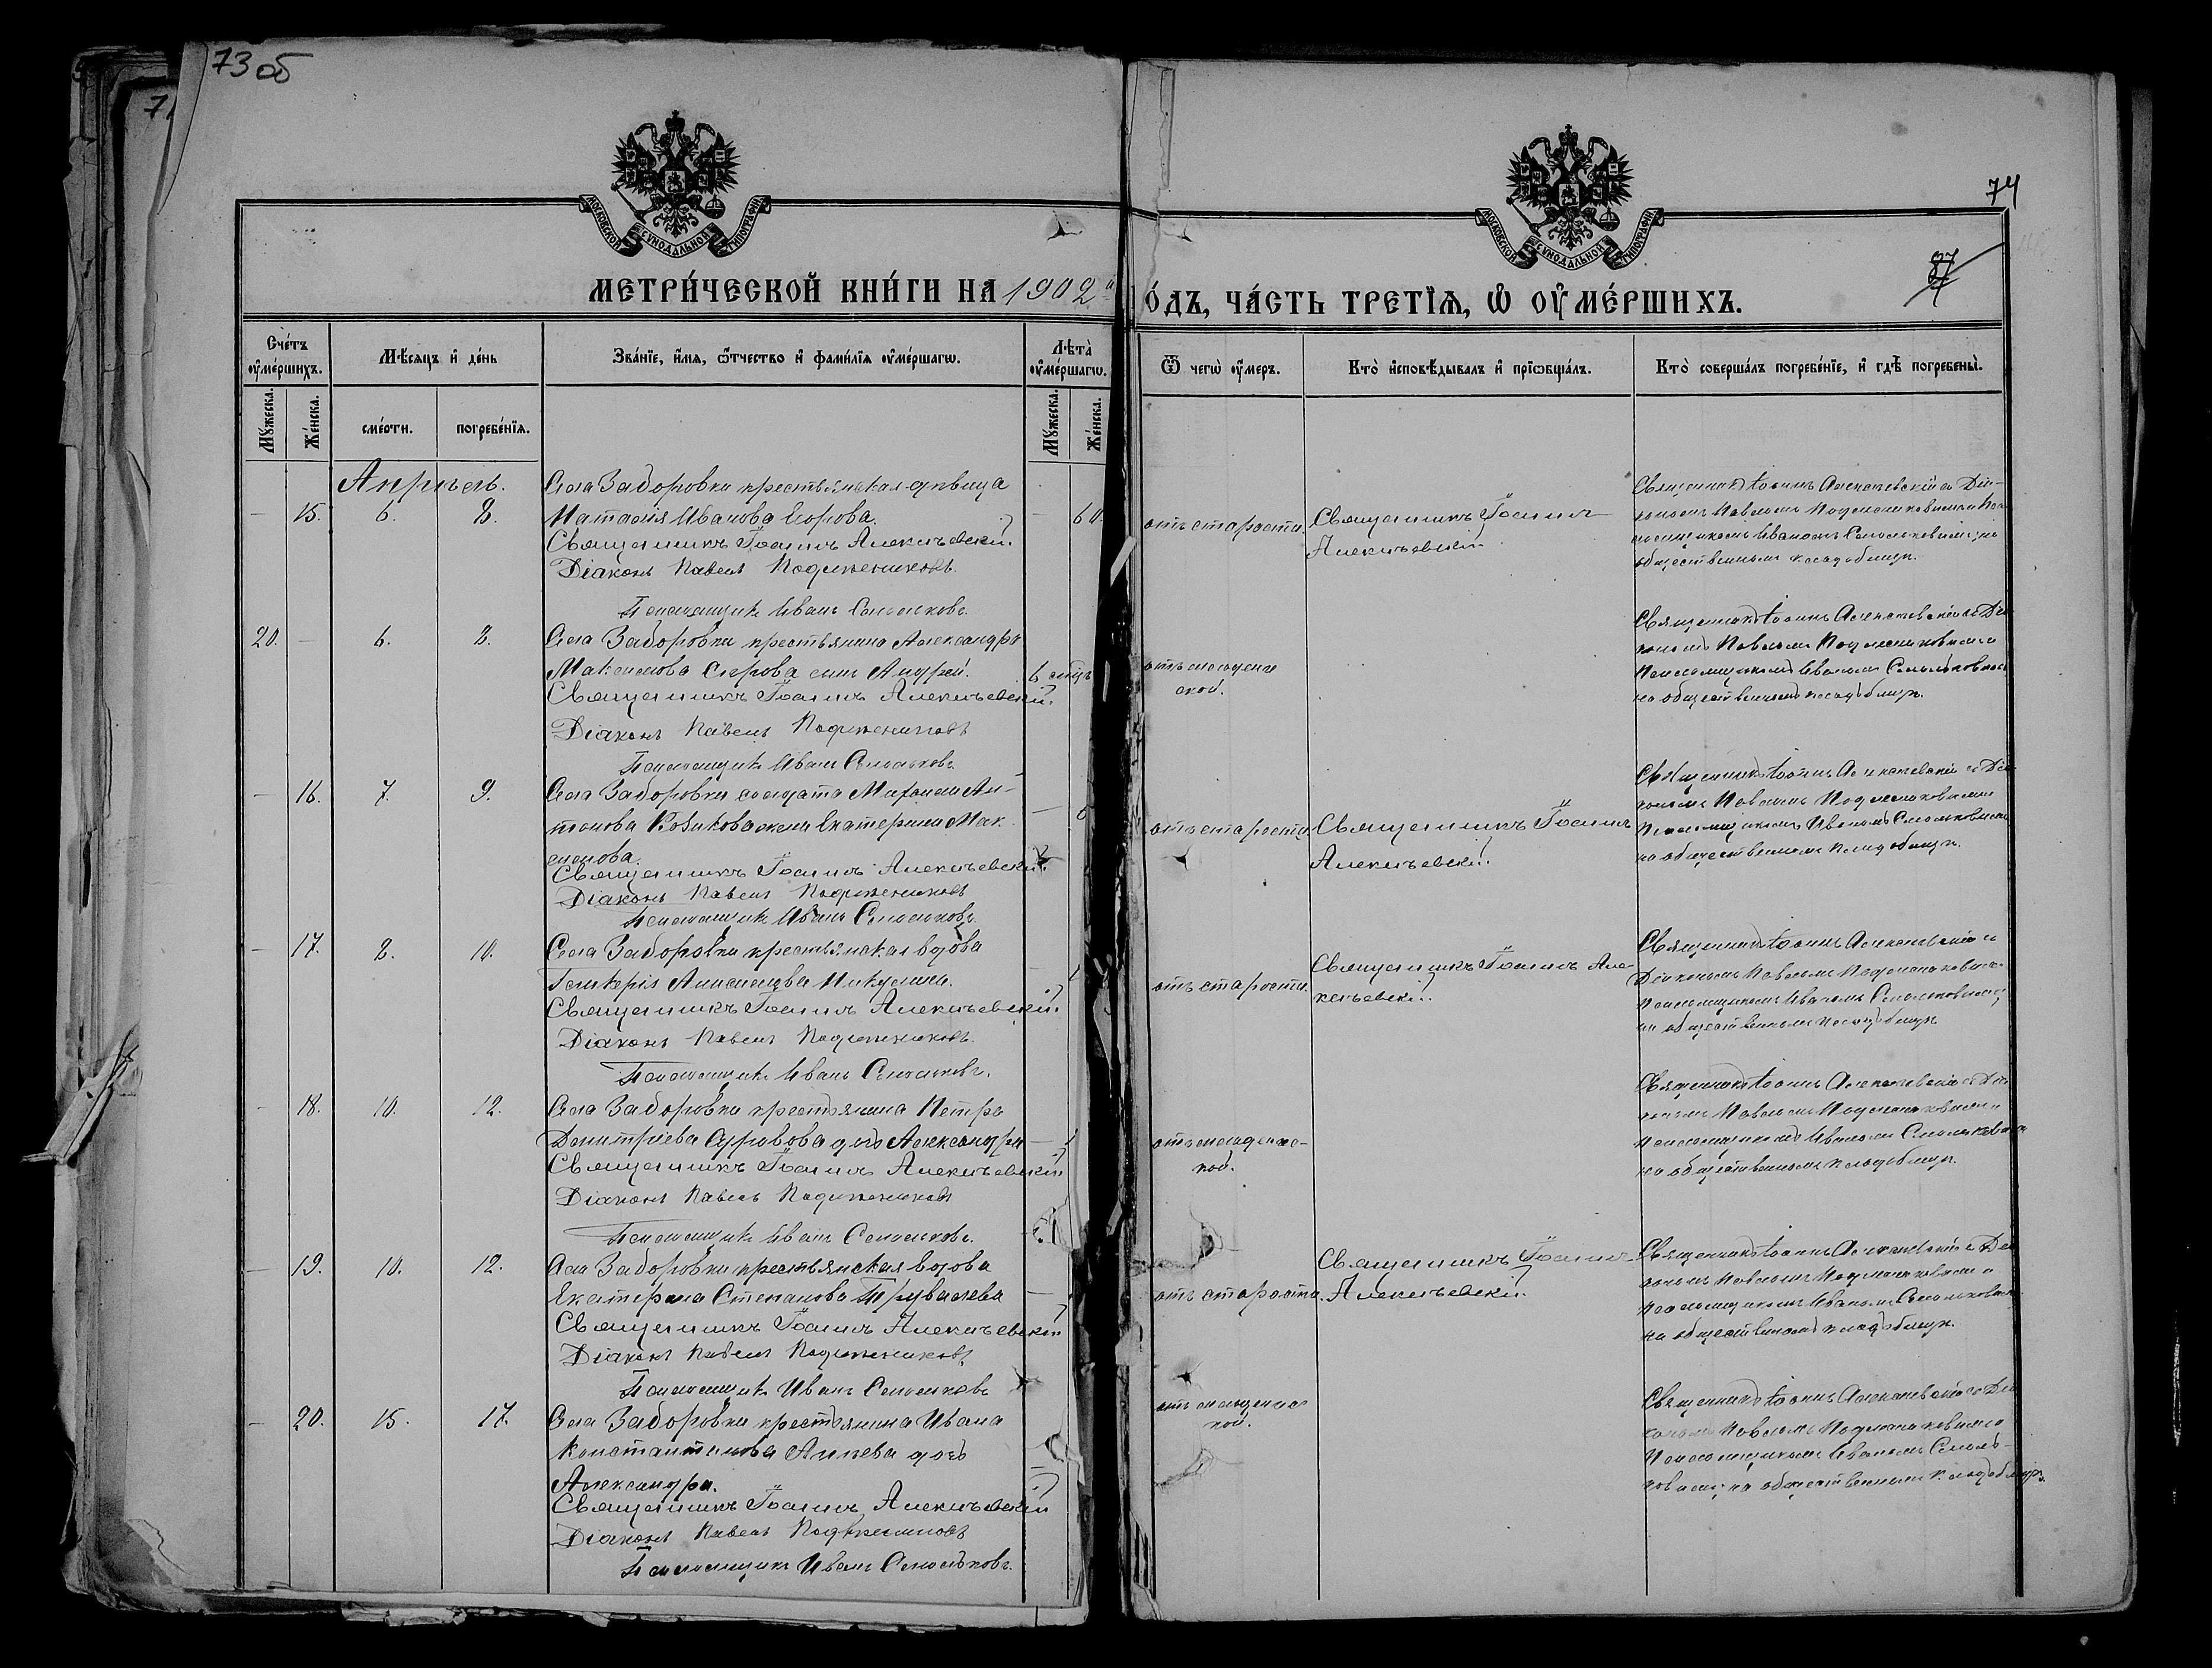 73 об
74
87
МОСКОВСКОЙ СѴНОДАЛЬНОЙ ТИПОГРАФІИ
МОСКОВСКОЙ СѴНОДАЛЬНОЙ ТИПОГРАФІИ
МЕТРИ́ЧЕСКОЙ КНИ́ГИ НА 1902 й
О́ДЪ, ЧА́СТЬ ТРЕТІЯ, Ѿ ОУМЕ́РШИХЪ.
Сче́тъ оуме́ршихъ.
Мѣсяцъ и де́нь
Зва́ніе, и́мя, ѿтчество и фами́лія оуме́ршагω.
Лѣта̀ оуме́ршагω.
Ѿ чегὼ оу́меръ.
Кто̀ исповѣдывалъ и пріωбща́лъ.
Кто̀ соверша́лъ погребе́ніе, и гдѣ погребены̀.
Му́жеска.
Же́нска.
сме́рти.
погребе́нія.
Му́жеска.
Же́нска.
Апрѣль.
Села Заборовки крестьянская дѣвица
— 15. 6. 8. Наталія Иванова Егорова. — 60.
Священникъ Іоаннъ Алексѣевскій.
Діаконъ Павелъ Подлѣсниковъ
Псаломщикъ Иванъ Смольковъ.
отъ старости.
Священникъ Іоаннъ
Алексѣевскій
Священникъ Іоаннъ Алексѣевскій съ Діа-
кономъ Павломъ Подлѣсниковымъ и Пса-
ломщикомъ Иваномъ Смольковымъ, на
общественномъ кладбищѣ.
20. — 6. 8. Села Заборовки крестьянина Александра
Максимова сынъ Андрей. 6 мѣц
Священникъ Іоаннъ Алексѣевскій.
Діаконъ Павелъ Подлѣсниковъ
Псаломщикъ Иванъ Смольковъ.
отъ младенче
ской.
Священникъ Іоаннъ Алексѣевскій съ Діа
кономъ Павломъ Подлѣсниковымъ и
Псаломщикомъ Иваномъ Смольковымъ
на общественномъ кладбищѣ.
— 16. 7. 9. Села Заборовки солдата Михаила Ан-
тонова жена Екатерина Мак
симова.
Священникъ Іоаннъ Алексѣевскій.
Діаконъ Павелъ Подлѣсниковъ
Псаломщикъ Иванъ Смольковъ.
отъ старости
Священникъ Іоаннъ
Алексѣевскій.
Священникъ Іоаннъ Алексѣевскій съ Діа
кономъ Павломъ Подлѣсниковымъ
Псаломщикомъ Иваномъ Смольковымъ
на общественномъ кладбищѣ.
— 17. 8. 10. Села Заборовки крестьянская вдова
Гликерія Никулина.
Священникъ Іоаннъ Алексѣевскій.
Діаконъ Павелъ Подлѣсниковъ.
Псаломщикъ Иванъ Смольковъ.
отъ старости.
Священникъ Іоаннъ Але-
ксѣевскій.
Священникъ Іоаннъ Алексѣевскій съ
Діакономъ Павломъ Подлѣсниковымъ
Псаломщикомъ Иваномъ Смольковымъ,
на общественномъ кладбищѣ
— 18. 10. 12. Села Заборовки крестьянина Петра
Димитріева дочь Александра —
Священникъ Іоаннъ Алексѣевскій
Діаконъ Павелъ Подлѣсниковъ
Псаломщикъ Иванъ Смольковъ.
отъ младенче-
кой.
Священникъ Іоаннъ Алексѣевскій съ Діа
кономъ Павломъ Подлѣсниковымъ и
Псаломщикомъ Иваномъ Смольковымъ
на общественномъ кладбищѣ.
— 19. 10. 12. Села Заборовки крестьянская вдова
Екатерина Степанова —
Священникъ Іоаннъ Алексѣевскій
Діаконъ Павелъ Подлѣсниковъ
Псаломщикъ Иванъ Смольковъ
отъ старости.
Священникъ Іоаннъ
Алексѣевскій.
Священникъ Іоаннъ Алексѣевскій съ Діа
кономъ Павломъ Подлѣсниковымъ и
Псаломщикомъ Иваномъ Смольковымъ
на общественномъ кладбищѣ.
— 20. 15. 17. Села Заборовки крестьянина Ивана
Константинова дочь
Александра.
Священникъ Іоаннъ Алексѣевскій
Діаконъ Павелъ Подлѣсниковъ
Псаломщикъ Иванъ Смольковъ.
отъ младенчес
кой.
Священникъ Іоаннъ Алексѣевскій съ Діа
кономъ Павломъ Подлѣсниковымъ и
Псаломщикомъ Иваномъ Смоль-
ковымъ, на общественномъ кладбищѣ.